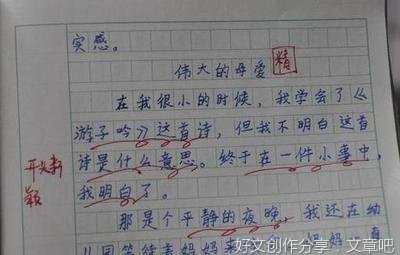 实感。
伟大的母爱 精
在我很小的时候，我学会了《
游子吟》这首诗，但我不明白这首
诗是什么意思。终于在一件小事中，
我明白了。
开头新
颖
那是个平静的夜晚，我还在幼
儿园等待着妈妈来
好文创作分享：文章吧